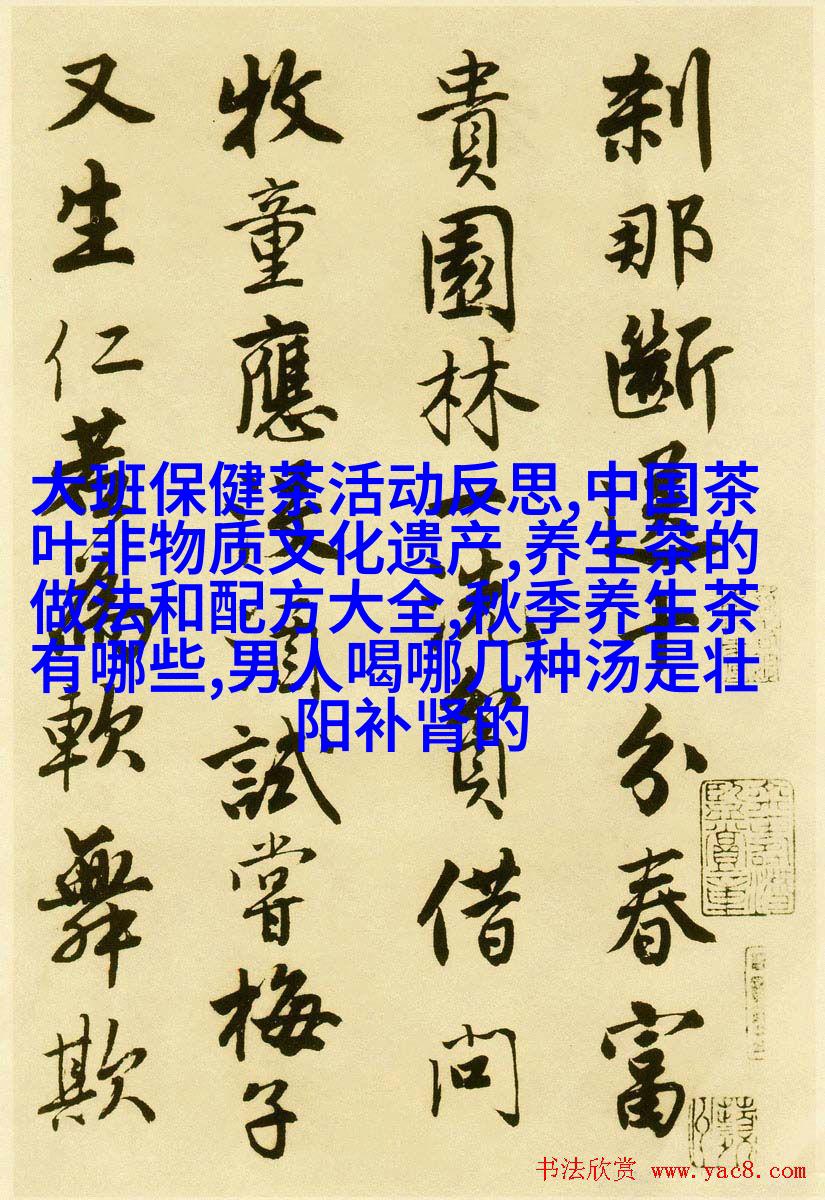 刹那斷送十分春富
貴園林一洗貧借問
牧童應沒酒試嘗梅子
又生仁若為軟舞欺
大班保健茶活动反思,中国茶
叶非物质文化遗产,养生茶的
做法和配方大全,秋季养生茶
有哪些,男人喝哪几种汤是壮
阳补肾的
书法欣赏 www.yac8.com